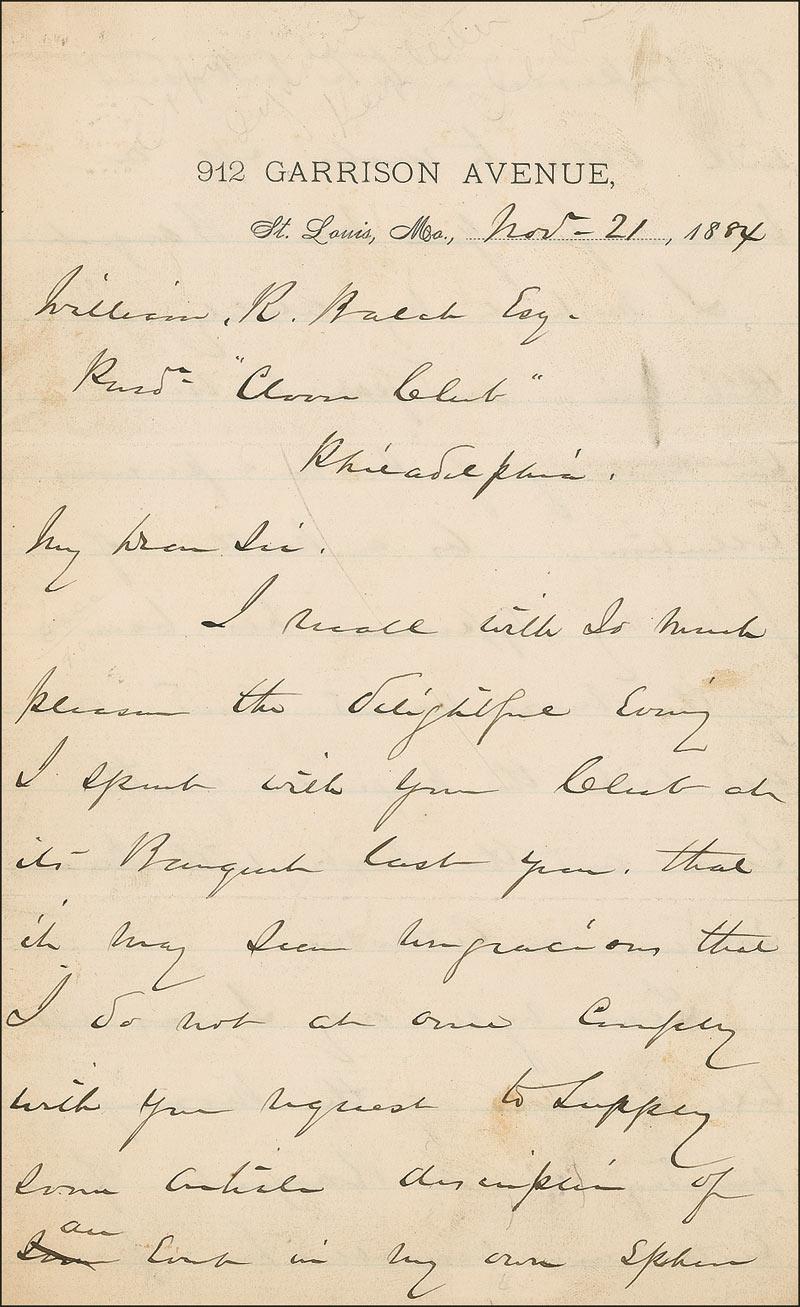 912 GARRISON AVENUE,
St. Louis, Mo., Nov - 21, 1884
William R. Balch Esq.
Presdt "Clover Club"
Philadelphia.
My Dear Sir.
I recall with so much
pleasure the delightful Evening
I spent with your Club at
its Banquet last year, that
it may seem ungracious that
I do not at once Comply
with your request to Supply
some article descriptive of
an
Event in my own Sphere